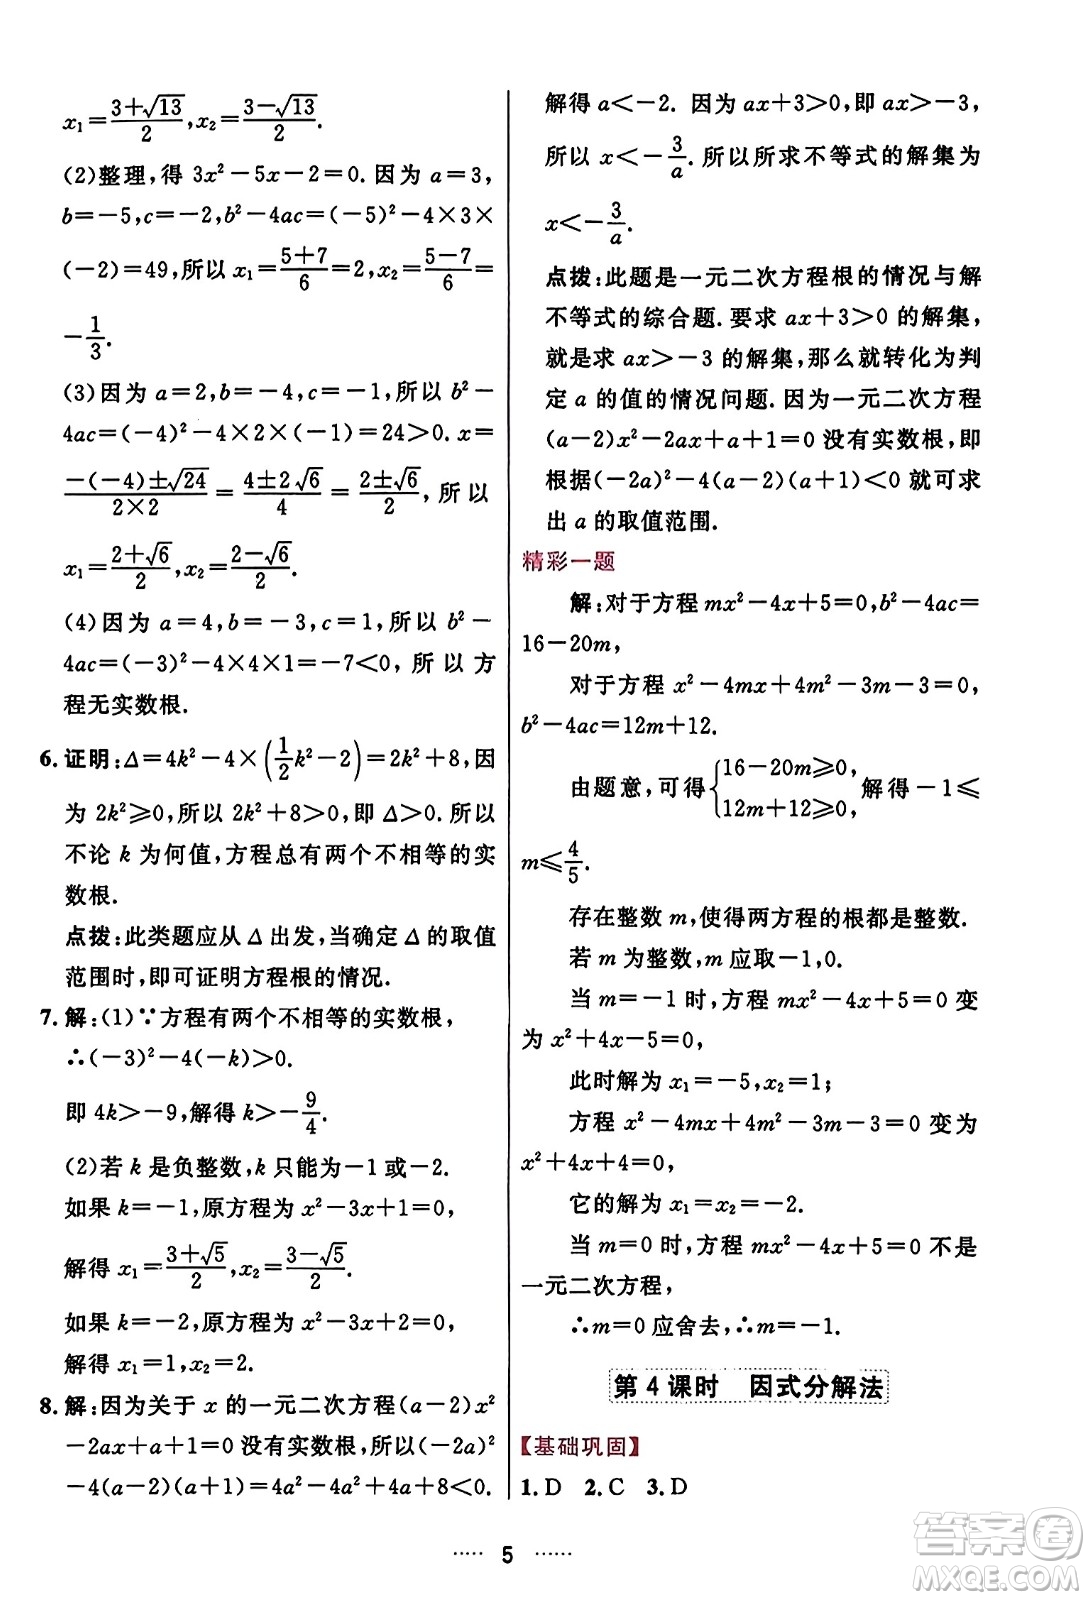 x₁=(3+√13)/2,x₂=(3-√13)/2.
(2)整理,得 3x²-5x-2=0.因为 a=3,
b=-5,c=-2,b²-4ac=(-5)²-4×3×
(-2)=49,所以 x₁=(5+7)/6=2,x₂=(5-7)/6=
-1/3.
(3)因为 a=2,b=-4,c=-1,所以 b²-
4ac=(-4)²-4×2×(-1)=24>0.x=
(-(-4)±√24)/(2×2)=(4±2√6)/4=(2±√6)/2,所以
x₁=(2+√6)/2,x₂=(2-√6)/2.
(4)因为 a=4,b=-3,c=1,所以 b²-
4ac=(-3)²-4×4×1=-7<0,所以方
程无实数根.
6.证明:Δ=4k²-4×(1/2k²-2)=2k²+8,因
为 2k²⩾0,所以 2k²+8>0,即 Δ>0.所以
不论 k 为何值,方程总有两个不相等的实
数根.
点拨:此类题应从 Δ 出发,当确定 Δ 的取值
范围时,即可证明方程根的情况.
7.解:(1)∵方程有两个不相等的实数根,
∴(-3)²-4(-k)>0.
即 4k>-9,解得 k>-9/4.
(2)若 k 是负整数,k 只能为-1 或-2.
如果 k=-1,原方程为 x²-3x+1=0,
解得 x₁=(3+√5)/2,x₂=(3-√5)/2.
如果 k=-2,原方程为 x²-3x+2=0,
解得 x₁=1,x₂=2.
8.解:因为关于 x 的一元二次方程(a-2)x²
-2ax+a+1=0 没有实数根,所以(-2a)²
-4(a-2)(a+1)=4a²-4a²+4a+8<0.
解得 a<-2. 因为 ax+3>0,即 ax>-3,
所以 x<-3/a.所以所求不等式的解集为
x<-3/a.
点拨:此题是一元二次方程根的情况与解
不等式的综合题.要求 ax+3>0 的解集,
就是求 ax>-3 的解集,那么就转化为判
定 a 的值的情况问题.因为一元二次方程
(a-2)x²-2ax+a+1=0 没有实数根,即
根据(-2a)²-4(a-2)(a+1)<0 就可求
出 a 的取值范围.
精彩一题
解:对于方程 mx²-4x+5=0,b²-4ac=
16-20m,
对于方程 x²-4mx+4m²-3m-3=0,
b²-4ac=12m+12.
由题意,可得{16-20m⩾0,12m+12⩾0,解得-1⩽
m⩽4/5.
存在整数 m,使得两方程的根都是整数.
若 m 为整数,m 应取-1,0.
当 m=-1 时,方程 mx²-4x+5=0 变
为 x²+4x-5=0,
此时解为 x₁=-5,x₂=1;
方程 x²-4mx+4m²-3m-3=0 变为
x²+4x+4=0,
它的解为 x₁=x₂=-2.
当 m=0 时,方程 mx²-4x+5=0 不是
一元二次方程,
∴m=0 应舍去,∴m=-1.
第 4 课时 因式分解法
【基础巩固】
1.D 2.C 3.D
5
答案卷
MXQE.COM